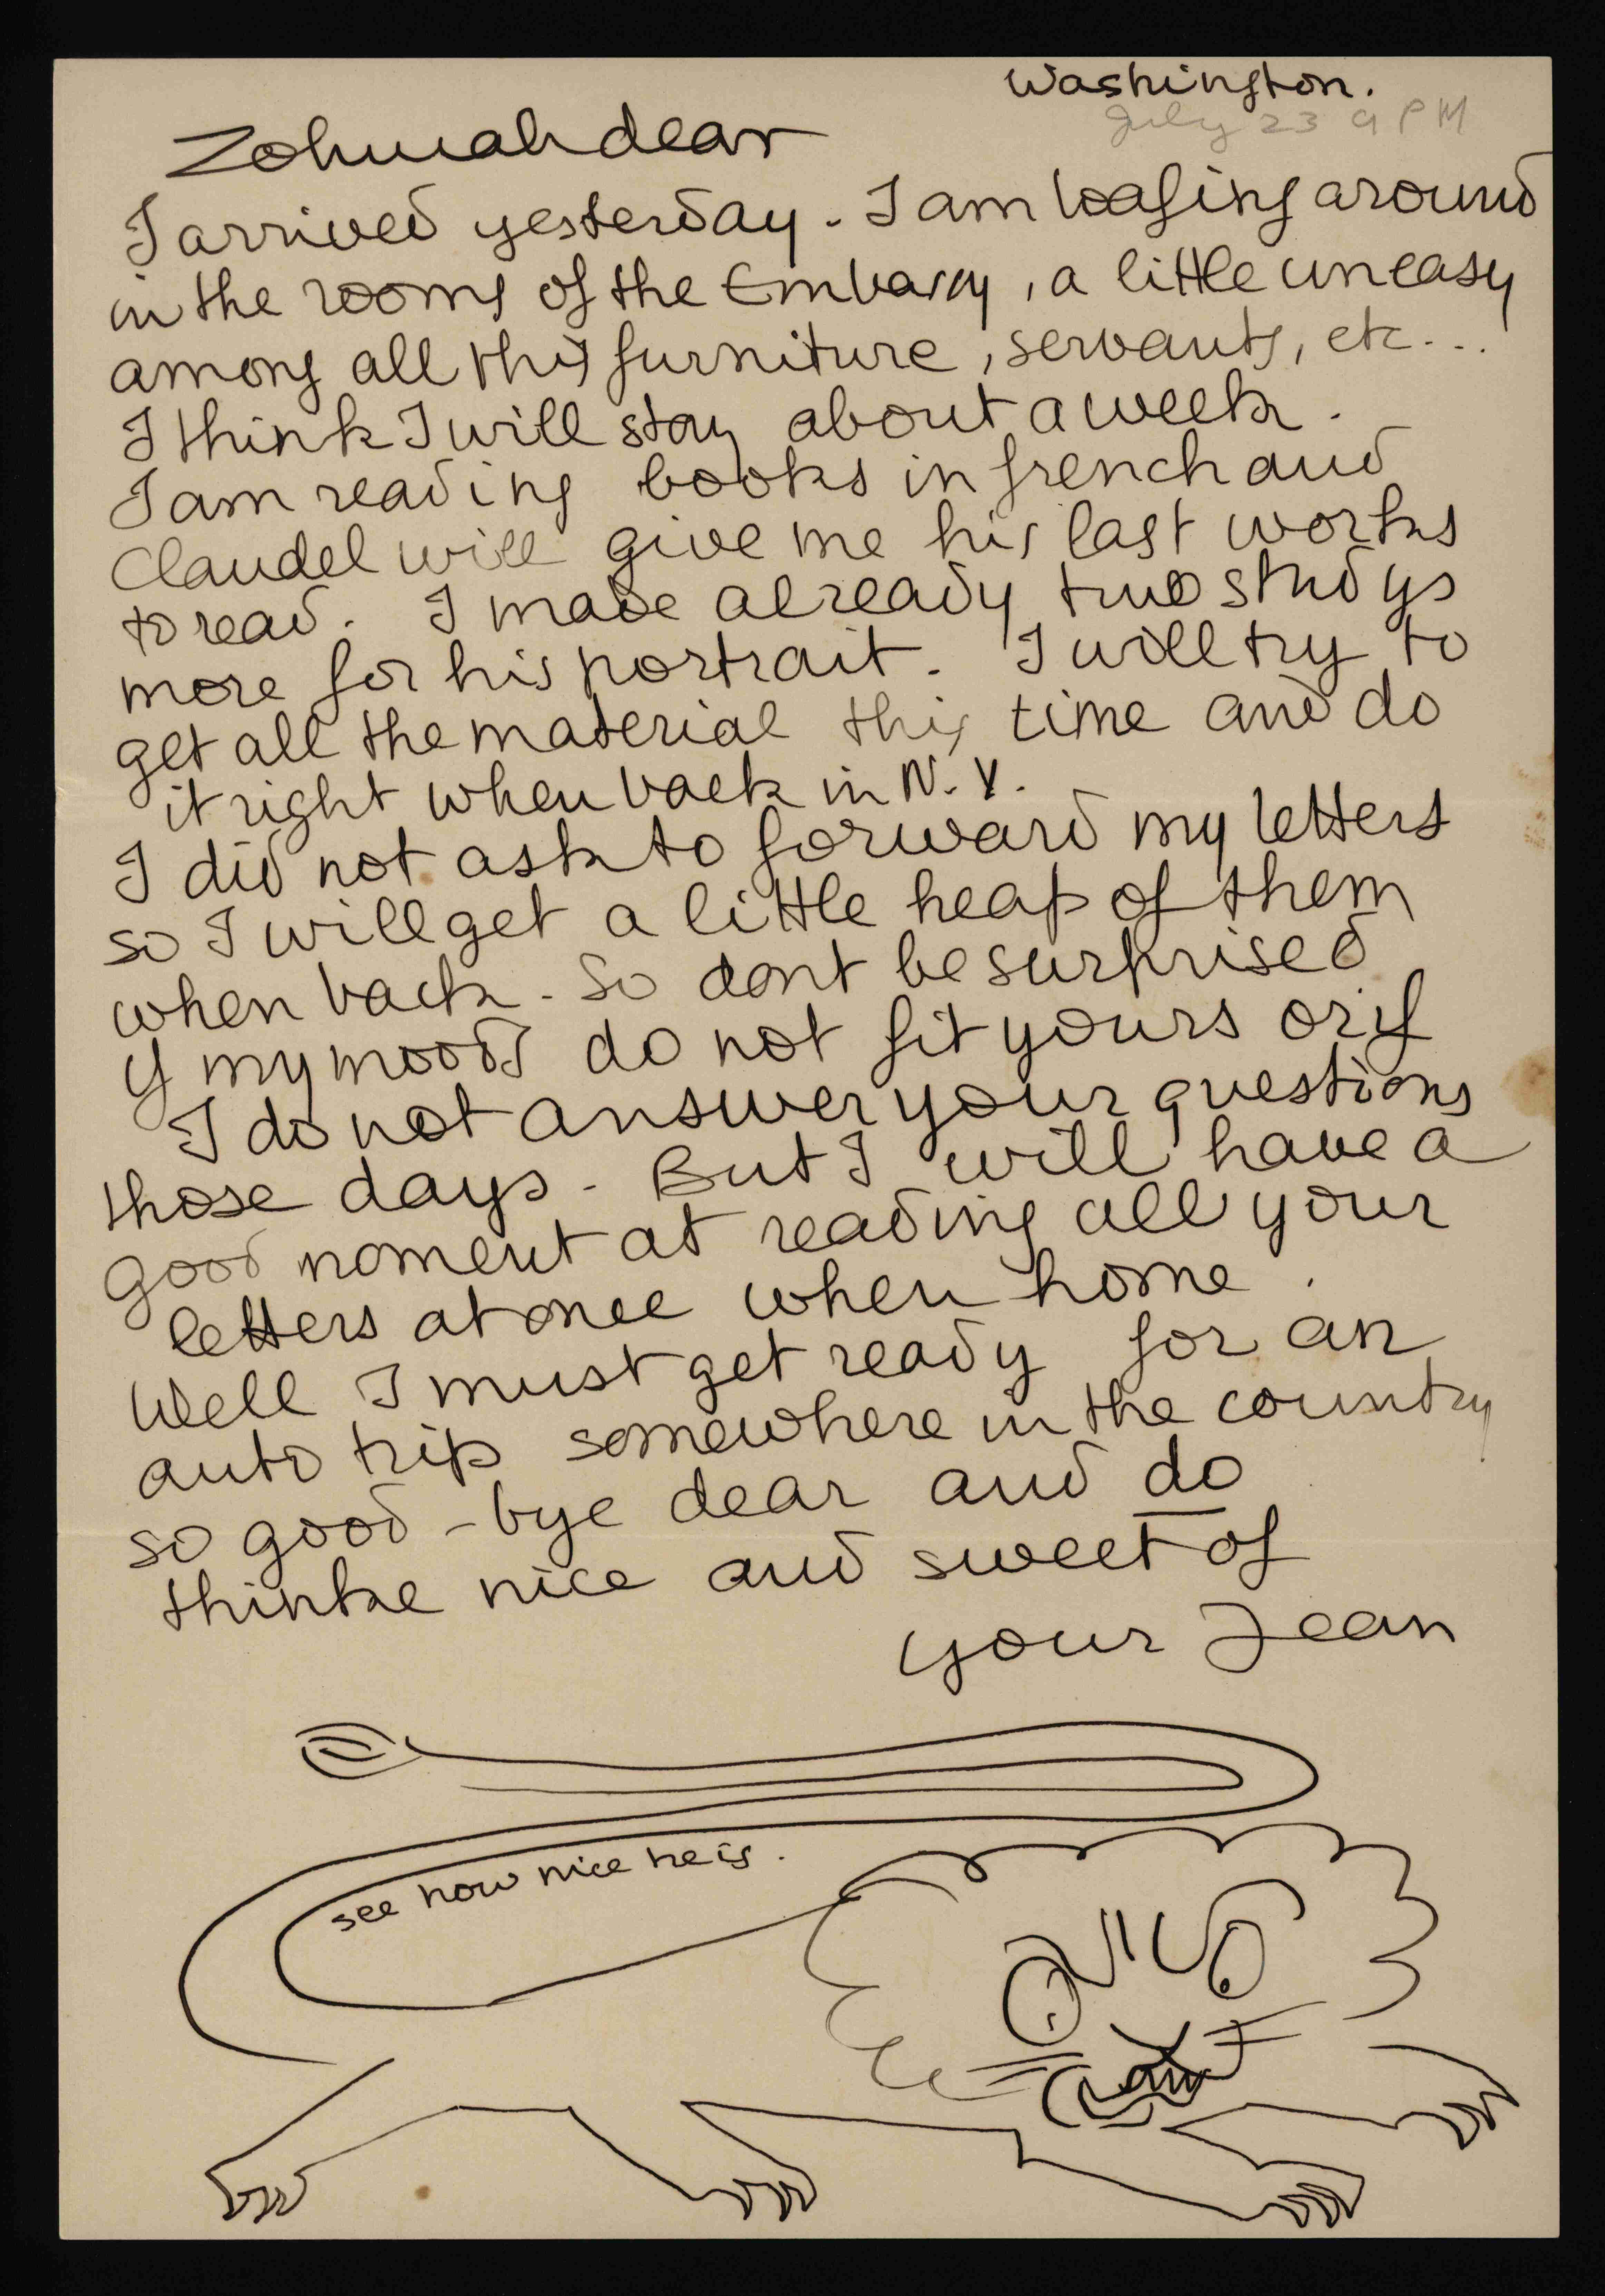 Washington.
July 23 9 PM
Zohmah dear
I arrived yesterday. I am loafing around
in the rooms of the Embassy, a little uneasy
among all this furniture, servants, etc...
I think I will stay about a week.
I am reading books in french and
Claudel will give me his last works
to read. I made already two studys
more for his portrait. I will try to
get all the material this time and do
it right when back in N.Y.
I did not ask to forward my letters
so I will get a little heap of them
when back. So dont be surprised
if my moods do not fit yours or if
I do not answer your questions
those days. But I will have a
good moment at reading all your
letters at once when home.
Well I must get ready for an
auto trip somewhere in the country
so good-bye dear and do
thinke nice and sweet of
your Jean
see how nice he is.